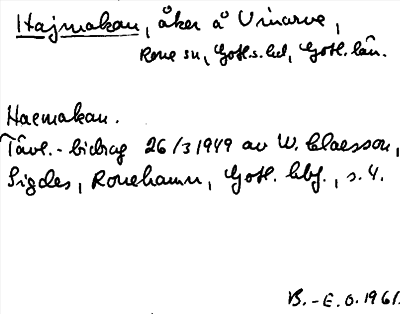 Hajmakan, åker å Uinarve,
Rone sn, Gotl.s.hd, Gotl. län.
Haemakan.
Tävl.-bidrag 26/3 1949 av W. Claesson,
Sigdes, Ronehamn, Gotl. hbf., s. 4.
B.-E. O. 1961.